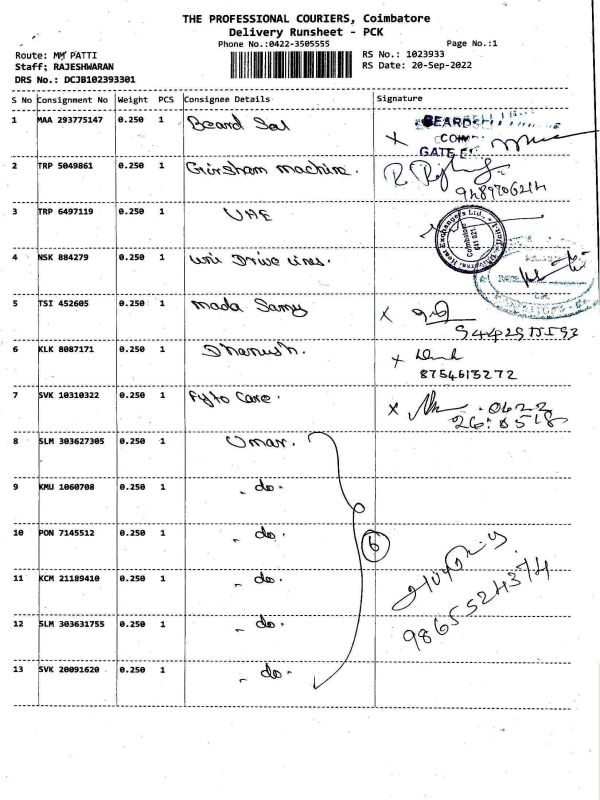 THE PROFESSIONAL COURIERS, Coimbatore
Delivery Runsheet - PCK
Phone No.:0422-3505555 Page No.:1
Route: MM PATTI RS No.: 1023933
Staff: RAJESHWARAN RS Date: 20-Sep-2022
DRS No.: DCJB102393301
S No Consignment No Weight PCS Consignee Details Signature
1 MAA 293775147 0.250 1 Beard Sel X BEARDS
GATE
2 TRP 5049861 0.250 1 machine.
9489706214
3 TRP 6497119 0.250 1 UAE
Coimbatore
641 021
4 NSK 884279 0.250 1 Uni Drive Lines.
5 TSI 452605 0.250 1 mada Samy X
6 KLK 8087171 0.250 1 Dhanush. X
8754613272
7 SVK 10310322 0.250 1 Fyto Care. X 0422
8 SLM 303627305 0.250 1 Umar.
9 KMU 1060708 0.250 1 - do -
10 PON 7145512 0.250 1 - do - 6
11 KCM 21189410 0.250 1 - do -
12 SLM 303631755 0.250 1 - do -
9865524374
13 SVK 20091620 0.250 1 - do -